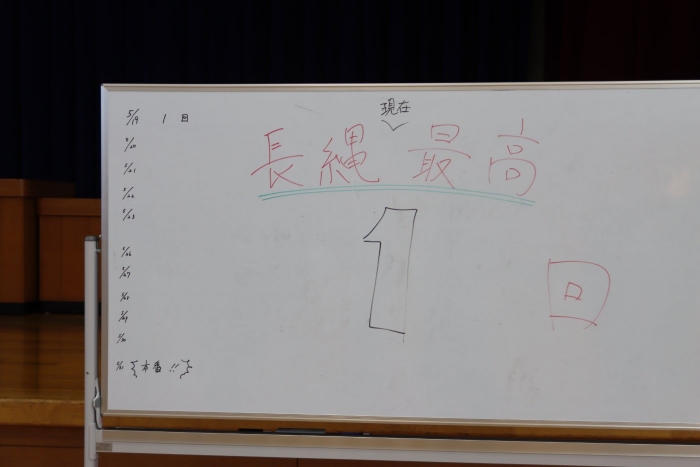 現在
長縄 最高
1 回
5/19 1 回
5/20
5/21
5/22
5/23
5/26
5/27
5/28
5/29
5/30
5/31 本番!!